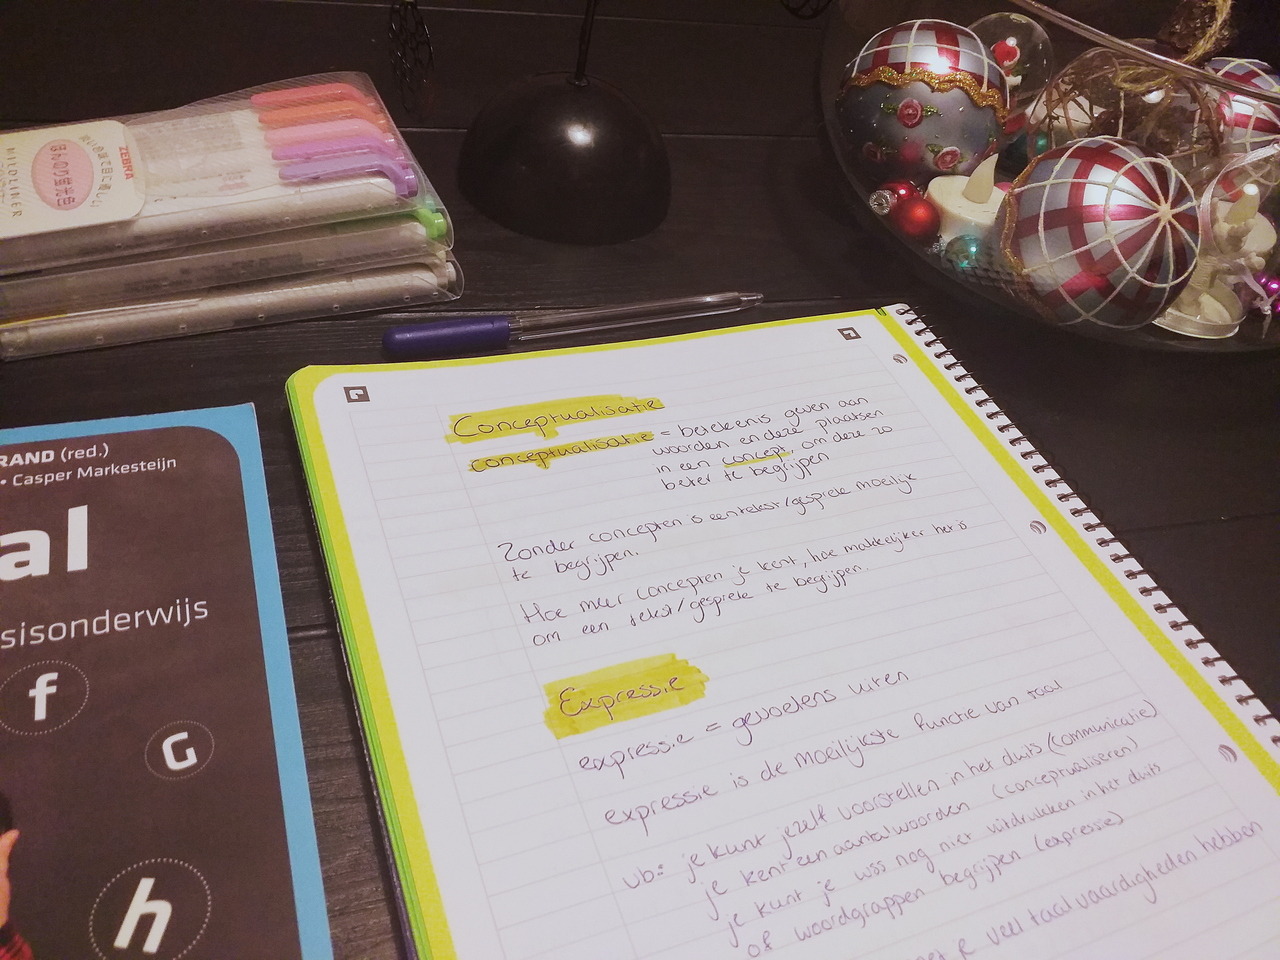 ZEBRA
MILDLINER
ほんのり蛍光色
RAND (red.)
• Casper Markesteijn
al
sisonderwijs
f
G
h
Conceptualisatie
conceptualisatie = betekenis geven aan
woorden en deze plaatsen
in een concept, om deze zo
beter te begrijpen
Zonder concepten is een tekst/gesprek moeilijk
te begrijpen.
Hoe meer concepten je kent, hoe makkelijker het is
om een tekst/gesprek te begrijpen.
Expressie
expressie = gevoelens uiten
expressie is de moeilijkste functie van taal
vb: je kunt jezelf voorstellen in het duits (communicatie)
je kent een aantal woorden (conceptualiseren)
je kunt je wss nog niet uitdrukken in het duits
of woordgrappen begrijpen (expressie)
je veel taalvaardigheden hebben